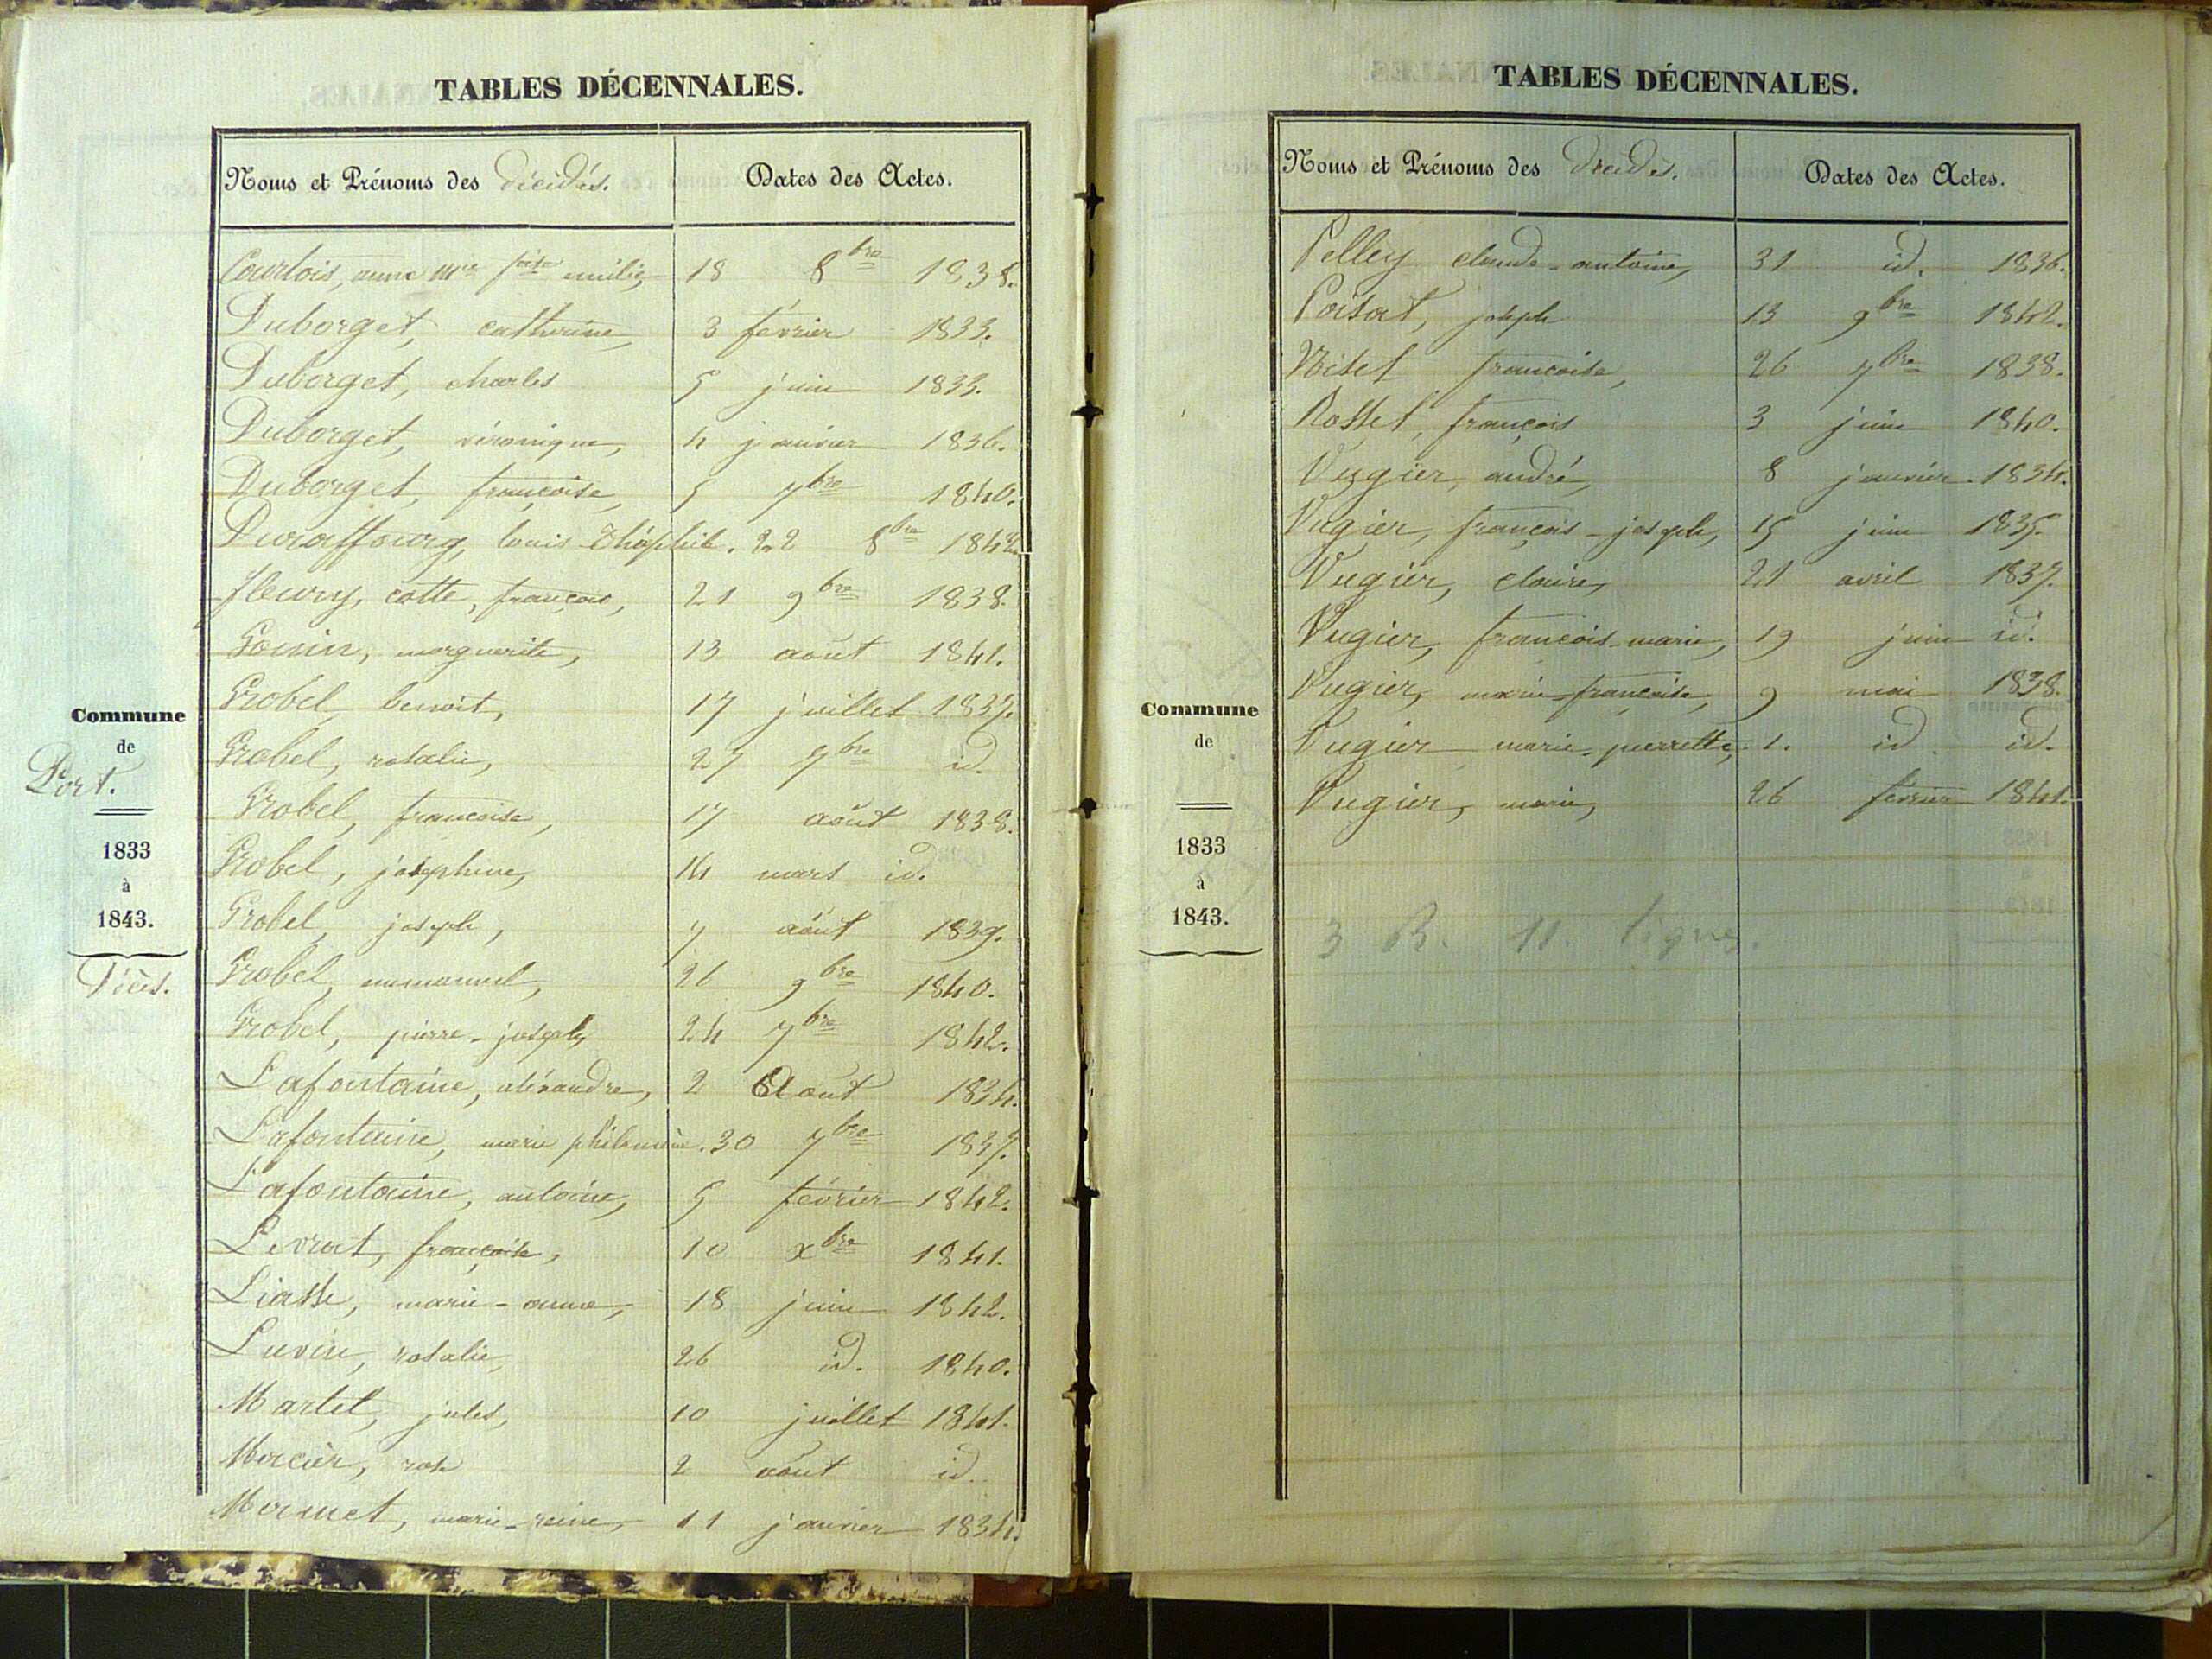 TABLES DÉCENNALES.
Noms et Prénoms des décédés. Dates des Actes.
Courtois, anne Mie emilie, 18 8bre 1838.
Duborget, catherine, 3 février 1833.
Duborget, charles 5 juin 1833.
Duborget, véronique, 4 janvier 1836.
Duborget, françoise, 5 7bre 1840.
Duraffourg, louis théophile. 22 8bre 1842
fleury, cotte, françois, 21 9bre 1838.
Gonin, marguerite, 13 août 1841.
Grobel, benoit, 17 juillet 1837.
Grobel, rosalie, 27 7bre id.
Grobel, françoise, 17 août 1838.
Grobel, josephine, 14 mars id.
Grobel, joseph, 7 août 1839.
Grobel, emmanuel, 26 9bre 1840.
Grobel, pierre-joseph, 24 7bre 1842.
Lafontaine, aléxandre, 2 Août 1834.
Lafontaine, marie philomène. 30 7bre 1837.
Lafontaine, antoine, 5 février 1842.
Levrat, françoise, 10 xbre 1841.
Liasse, marie-anne, 18 juin 1842.
Luvin, rosalie, 26 id. 1840.
Martel, jules, 10 juillet 1841.
Mercier, rose 2 août id.
Mermet, marie-reine, 11 janvier 1834.
Commune
de
Port.
1833
à
1843.
Décès.
TABLES DÉCENNALES.
Noms et Prénoms des décédés. Dates des Actes.
Pelley claude-antoine, 31 id. 1836.
Poisat, joseph 13 9bre 1842.
françoise, 26 7bre 1838.
Rosset, françois 3 juin 1840.
Vugier, andré, 8 janvier 1834.
Vugier, françois-joseph, 15 juin 1835.
Vugier, claire, 21 avril 1837.
Vugier, françois-marie, 19 juin id.
Vugier, marie-françoise, 9 mai 1838.
Vugier marie-pierrette, 1. id. id.
Vugier, marie, 26 février 1841.
3 R. 11. lignes.
Commune
de
1833
à
1843.